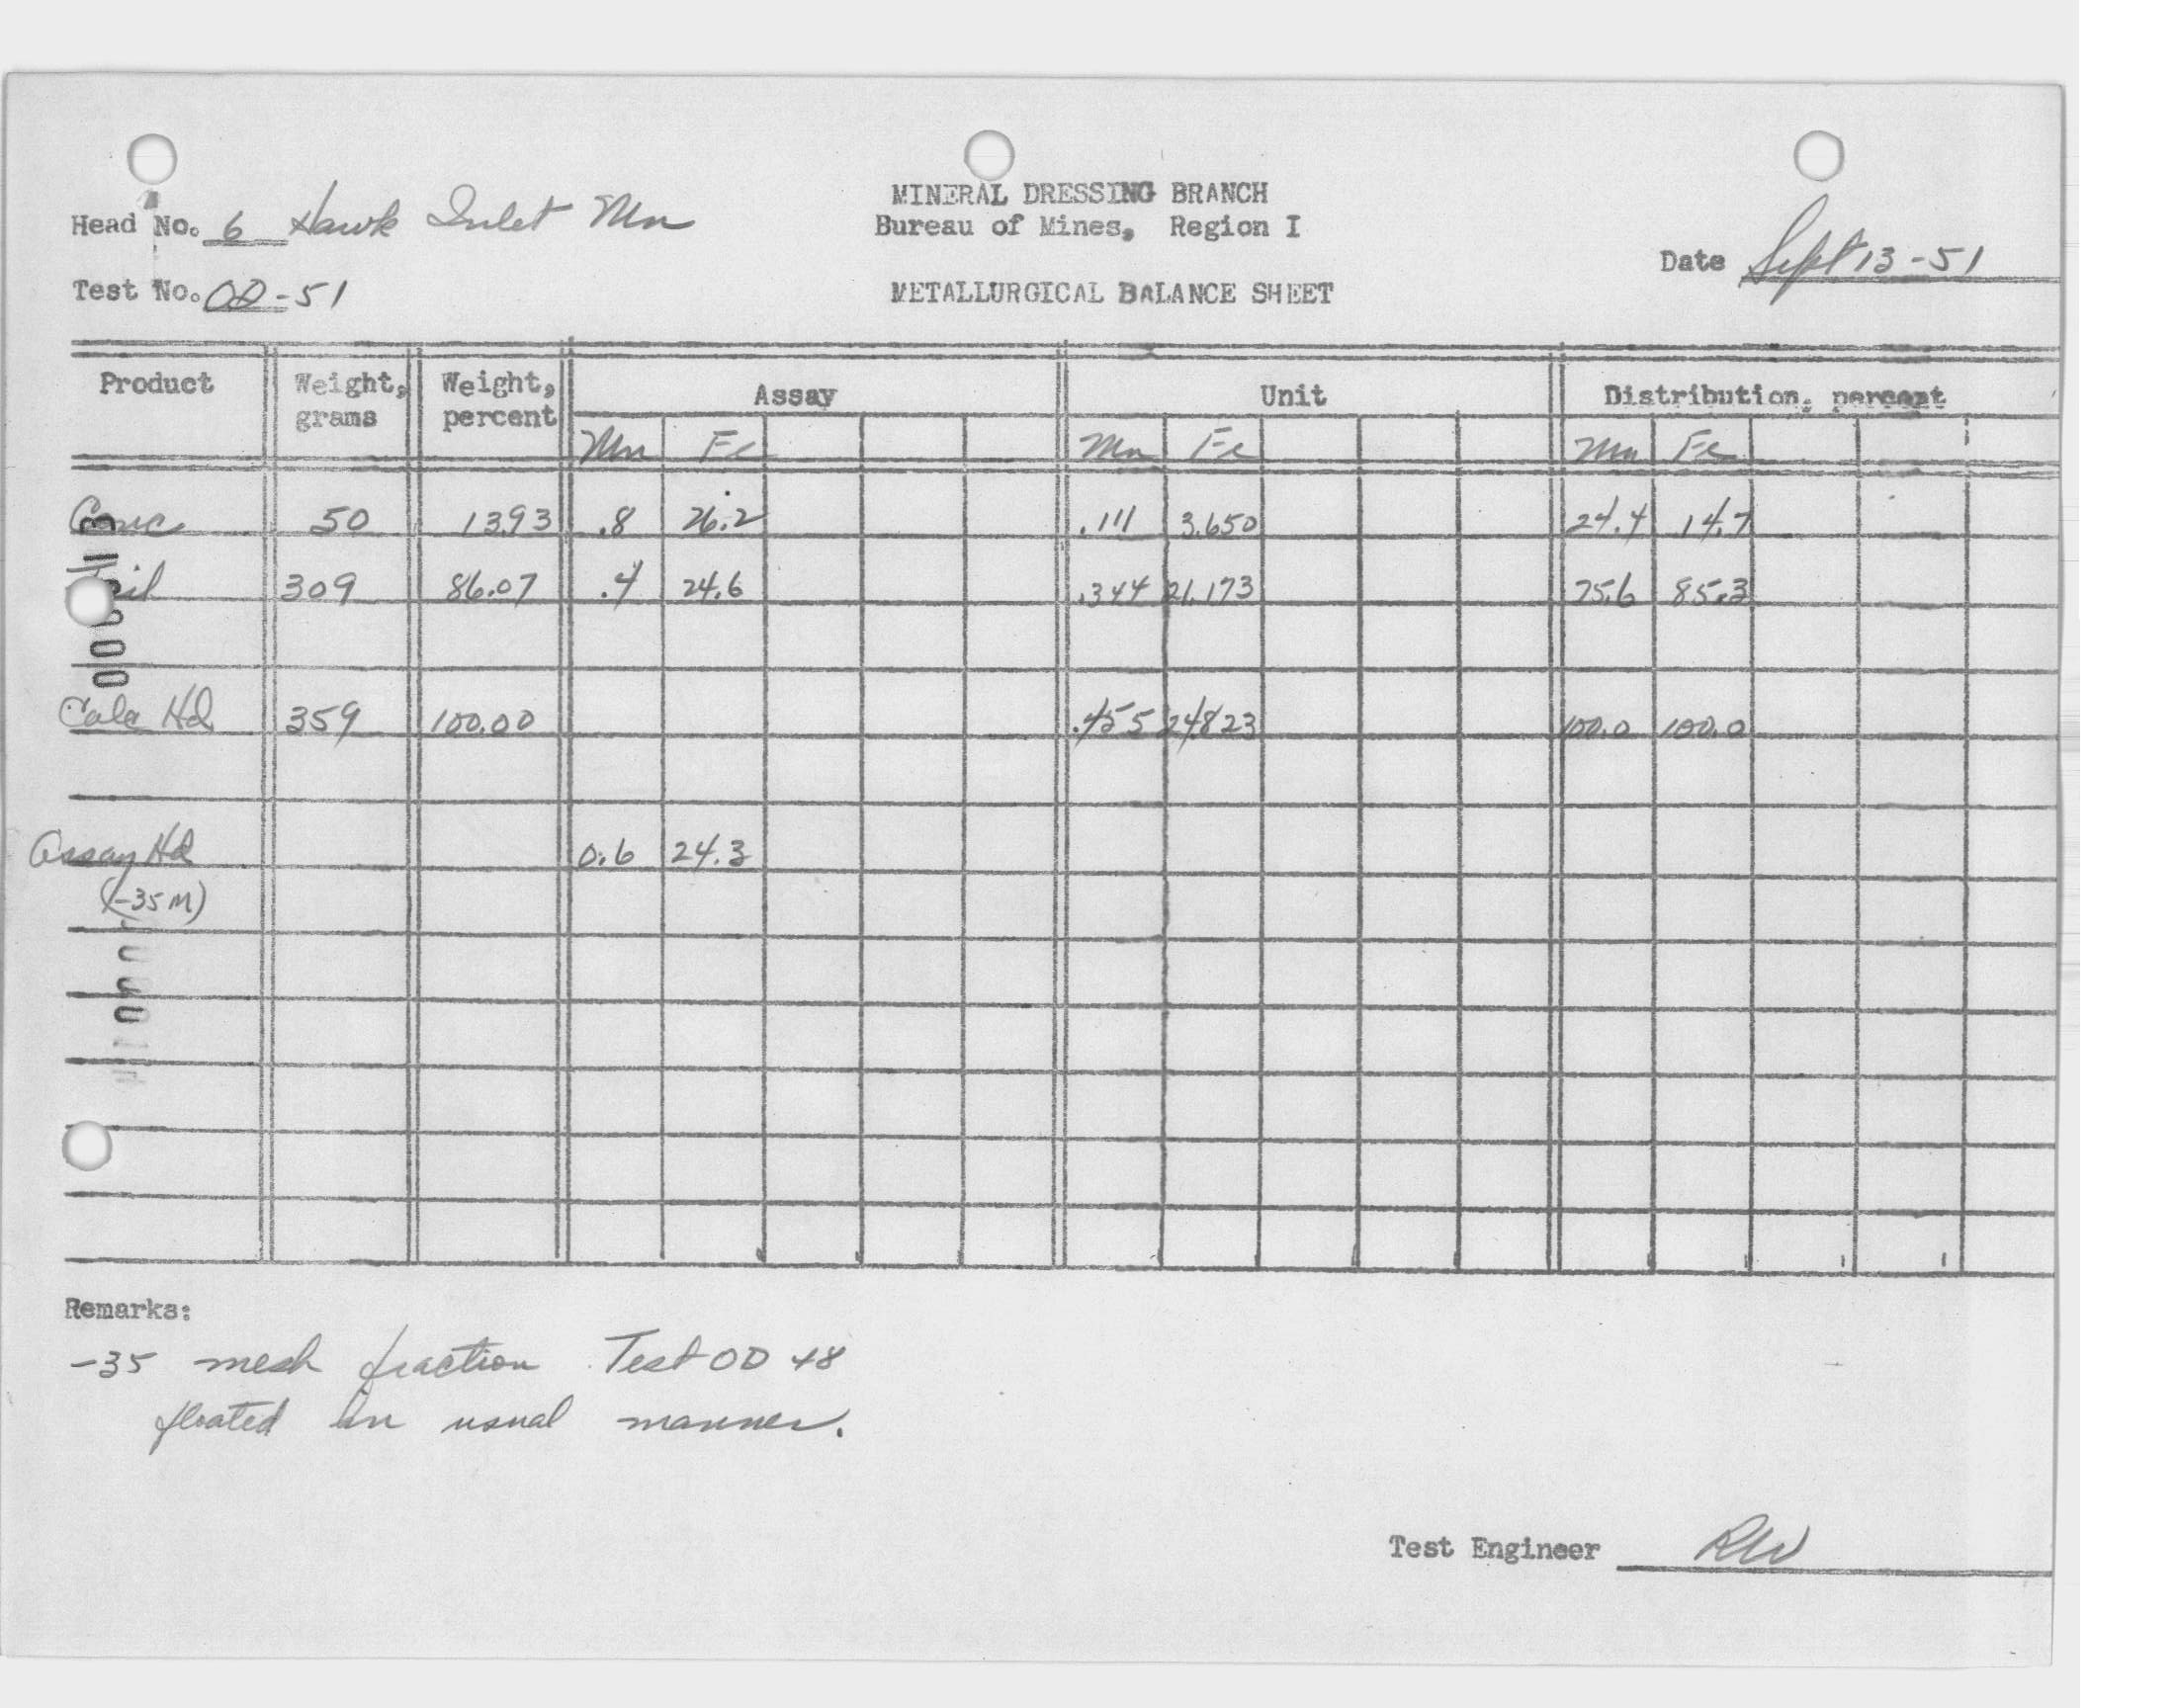 MINERAL DRESSING BRANCH
Head No. 6 Hawk Inlet Mn
Bureau of Mines, Region I
Date Sept 13-51
Test No. OD-51
METALLURGICAL BALANCE SHEET
Product Weight, grams Weight, percent Assay Unit Distribution, percent
Mn Fe Mn Fe Mn Fe
Conc 50 13.93 .8 26.2 .111 3.650 24.4 14.7
Tail 309 86.07 .4 24.6 .344 21.173 75.6 85.3
Calc Hd 359 100.00 .455 24.823 100.0 100.0
Assay Hd 0.6 24.3
(-35 M)
Remarks:
-35 mesh fraction Test OD 48
floated in usual manner.
Test Engineer RW